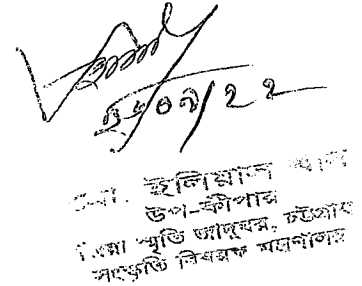 মো. ইলিয়াস খান
উপ-কীপার
জিয়া স্মৃতি জাদুঘর, চট্টগ্রাম
সংস্কৃতি বিষয়ক মন্ত্রণালয়